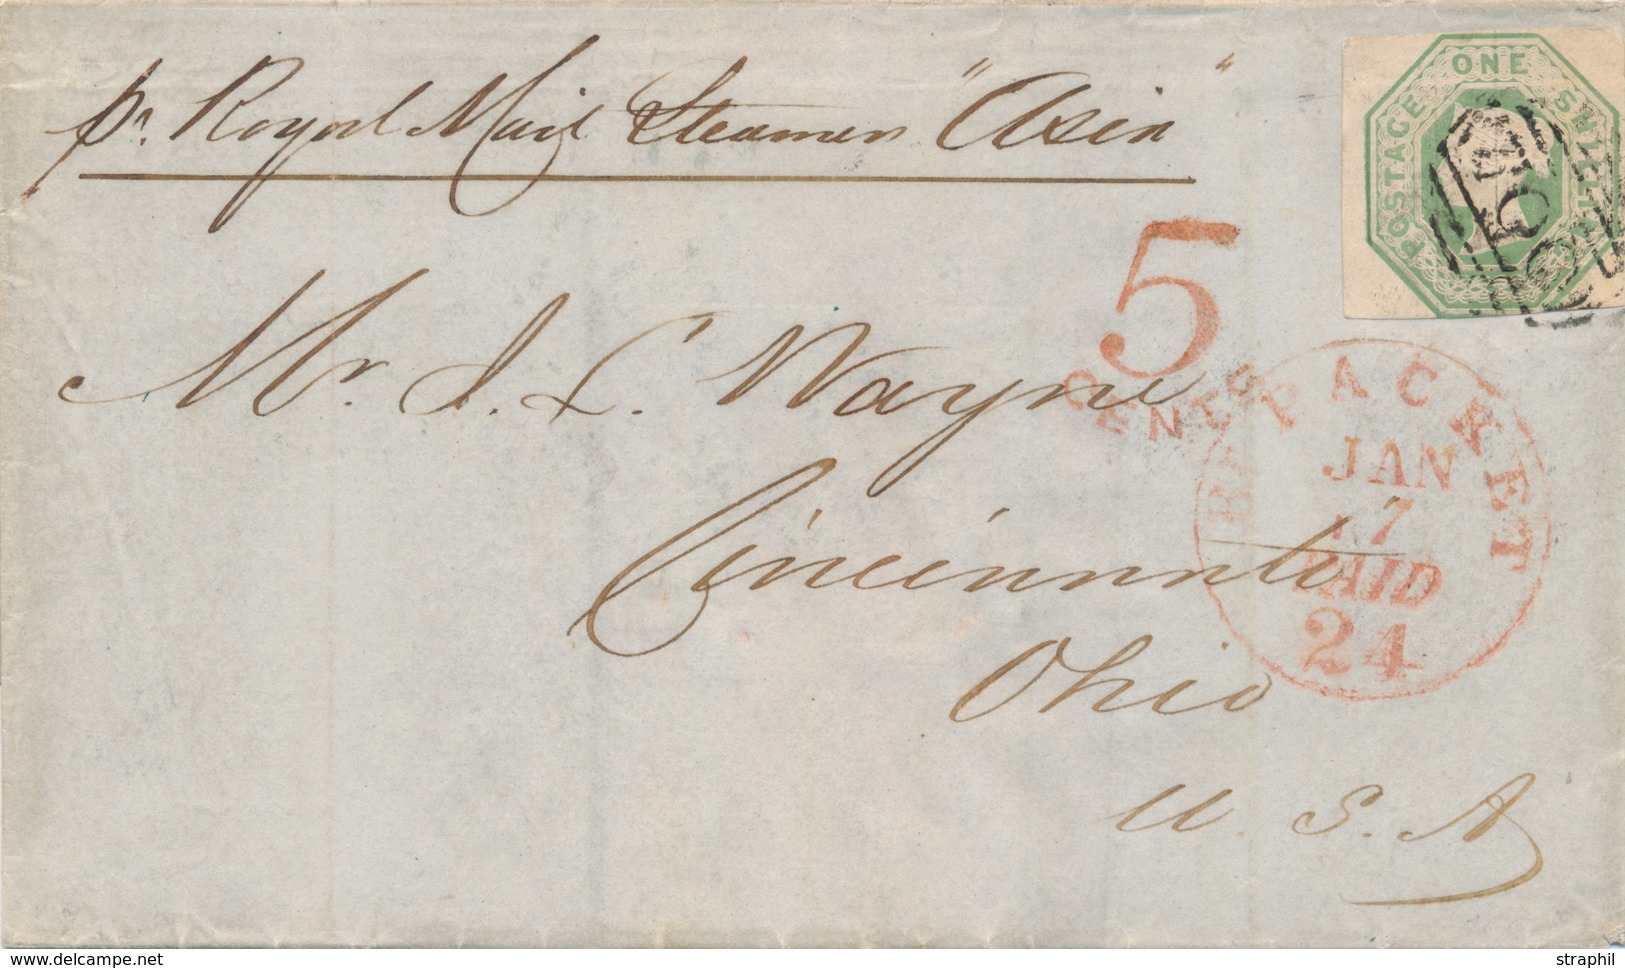 pr. Royal Mail Steamer "Asia"
POSTAGE ONE SHILLING
5
CENTS
Mr. J. C. Wayne
Cincinnati
Ohio
U. S. A
BR PACKET
JAN
17
PAID
24
straphil